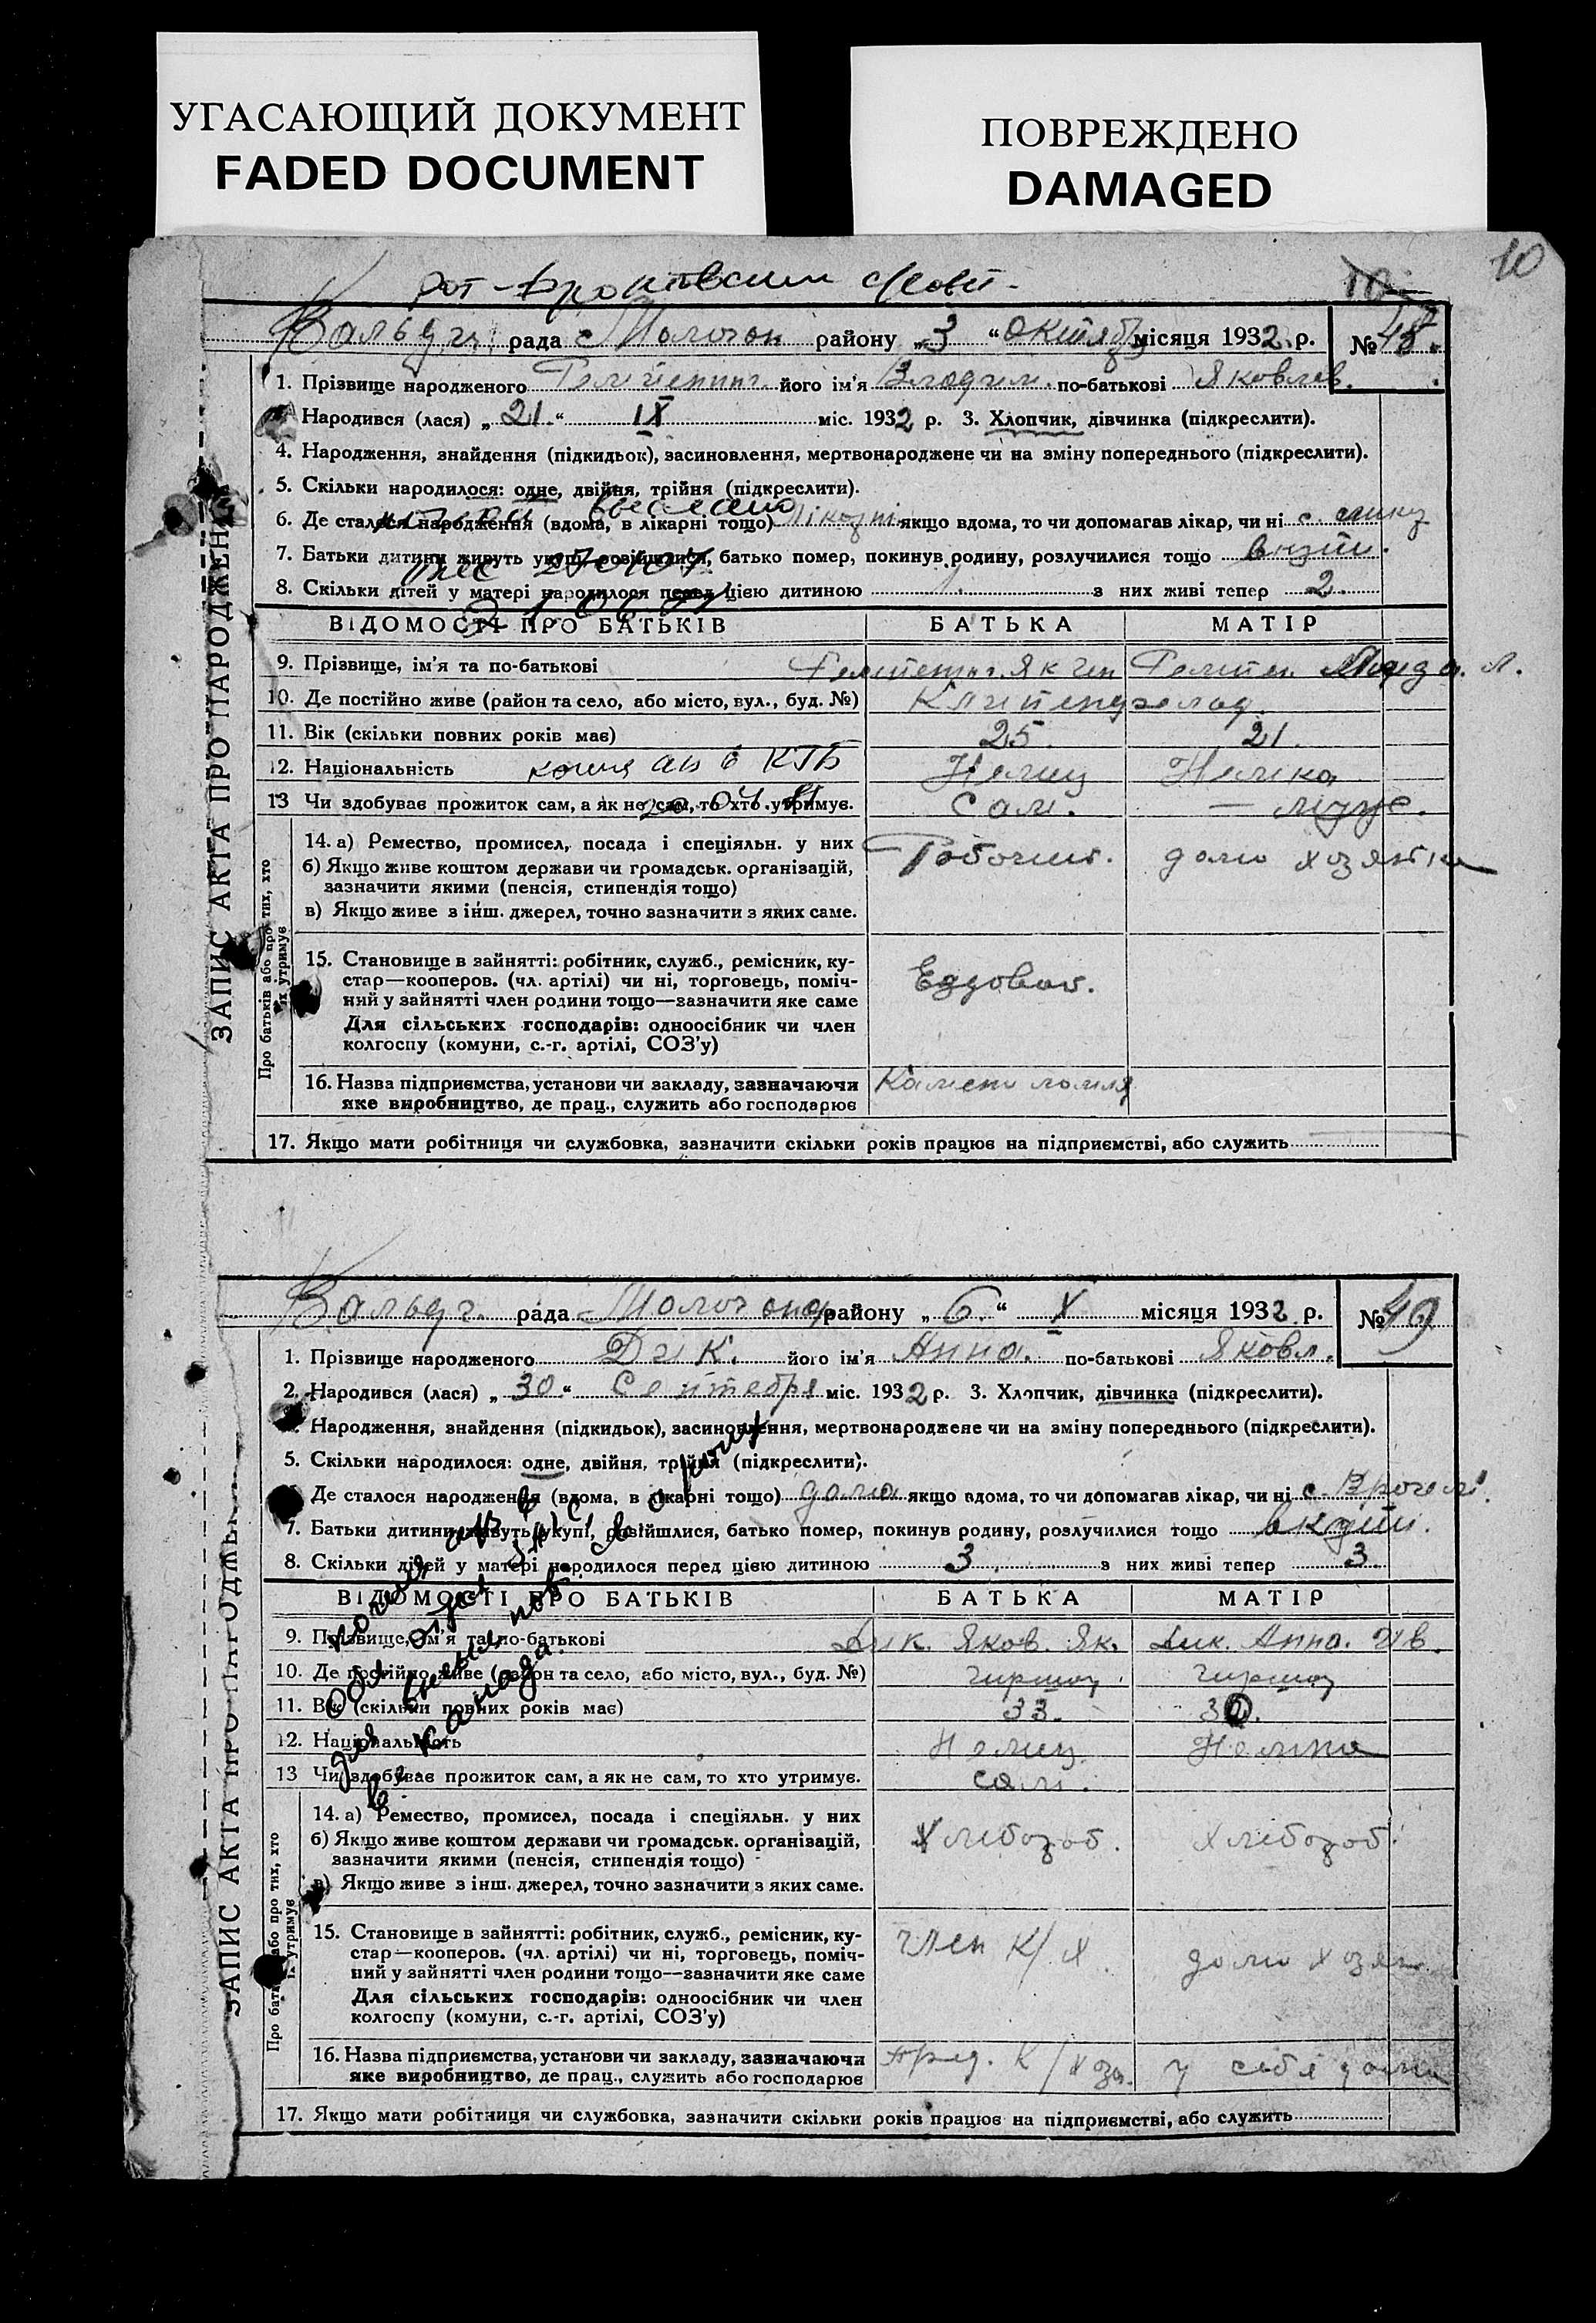 УГАСАЮЩИЙ ДОКУМЕНТ
FADED DOCUMENT
ПОВРЕЖДЕНО
DAMAGED
10
рада с Молочан району „ 3 “ Октяб місяця 1932 р. № 48.
ЗАПИС АКТА ПРО НАРОДЖЕННЯ
1. Прізвище народженого його ім'я Владим. по-батькові Яковлев.
Народився (лася) „ 21. “ IX міс. 1932 р. 3. Хлопчик, дівчинка (підкреслити).
4. Народження, знайдення (підкидьок), засиновлення, мертвонароджене чи на зміну попереднього (підкреслити).
5. Скільки народилося: одне, двійня, трійня (підкреслити).
6. Де сталося народження (вдома, в лікарні тощо) якщо вдома, то чи допомагав лікар, чи ні
7. Батьки дитини живуть укупі, розійшлися, батько помер, покинув родину, розлучилися тощо
8. Скільки дітей у матері народилося перед цією дитиною 1. з них живі тепер 2.
ВІДОМОСТІ ПРО БАТЬКІВ БАТЬКА МАТІР
9. Прізвище, ім'я та по-батькові
10. Де постійно живе (район та село, або місто, вул., буд. №)
11. Вік (скільки повних років має) 25. 21.
12. Національність копия КГБ Немец Немка
13 Чи здобуває прожиток сам, а як не сам, то хто утримує. Сам. — муже.
Про батьків або про тих, хто їх утримує
14. а) Ремество, промисел, посада і спеціяльн. у них Робочий. дом хозяйка
б) Якщо живе коштом держави чи громадськ. організацій,
зазначити якими (пенсія, стипендія тощо)
в) Якщо живе з інш. джерел, точно зазначити з яких саме.
15. Становище в зайнятті: робітник, служб., ремісник, ку-
стар—кооперов. (чл. артілі) чи ні, торговець, поміч- Ездовой.
ний у зайнятті член родини тощо—зазначити яке саме
Для сільських господарів: одноосібник чи член
колгоспу (комуни, с.-г. артілі, СОЗ'у)
16. Назва підприємства, установи чи закладу, зазначаючи
яке виробництво, де прац., служить або господарює
17. Якщо мати робітниця чи службовка, зазначити скільки років працює на підприємстві, або служить
рада Молочан району „ 6. “ X місяця 1932 р. № 49
ЗАПИС АКТА ПРО НАРОДЖЕННЯ
1. Прізвище народженого Дик. його ім'я Анна. по-батькові Яковл.
2. Народився (лася) „ 30 “ Сентебря міс. 1932 р. 3. Хлопчик, дівчинка (підкреслити).
Народження, знайдення (підкидьок), засиновлення, мертвонароджене чи на зміну попереднього (підкреслити).
5. Скільки народилося: одне, двійня, трійня (підкреслити).
Де сталося народження (вдома, в лікарні тощо) дома якщо вдома, то чи допомагав лікар, чи ні
7. Батьки дитини живуть укупі, розійшлися, батько помер, покинув родину, розлучилися тощо
8. Скільки дітей у матері народилося перед цією дитиною 3. з них живі тепер 3.
ВІДОМОСТІ ПРО БАТЬКІВ БАТЬКА МАТІР
9. Прізвище, ім'я та по-батькові Дик. Яков. Як. Дик. Анна. Ив.
10. Де постійно живе (район та село, або місто, вул., буд. №)
11. Вік (скільки повних років має) 33. 30.
12. Національність Немец. Немка
13 Чи здобуває прожиток сам, а як не сам, то хто утримує. сам.
Про батьків або про тих, хто їх утримує
14. а) Ремество, промисел, посада і спеціяльн. у них
б) Якщо живе коштом держави чи громадськ. організацій, Хлебороб. Хлебороб.
зазначити якими (пенсія, стипендія тощо)
в) Якщо живе з інш. джерел, точно зазначити з яких саме.
15. Становище в зайнятті: робітник, служб., ремісник, ку-
стар—кооперов. (чл. артілі) чи ні, торговець, поміч- член К/Х. дом хозяй.
ний у зайнятті член родини тощо—зазначити яке саме
Для сільських господарів: одноосібник чи член
колгоспу (комуни, с.-г. артілі, СОЗ'у)
16. Назва підприємства, установи чи закладу, зазначаючи пред. К/хоз. у себя дома
яке виробництво, де прац., служить або господарює
17. Якщо мати робітниця чи службовка, зазначити скільки років працює на підприємстві, або служить